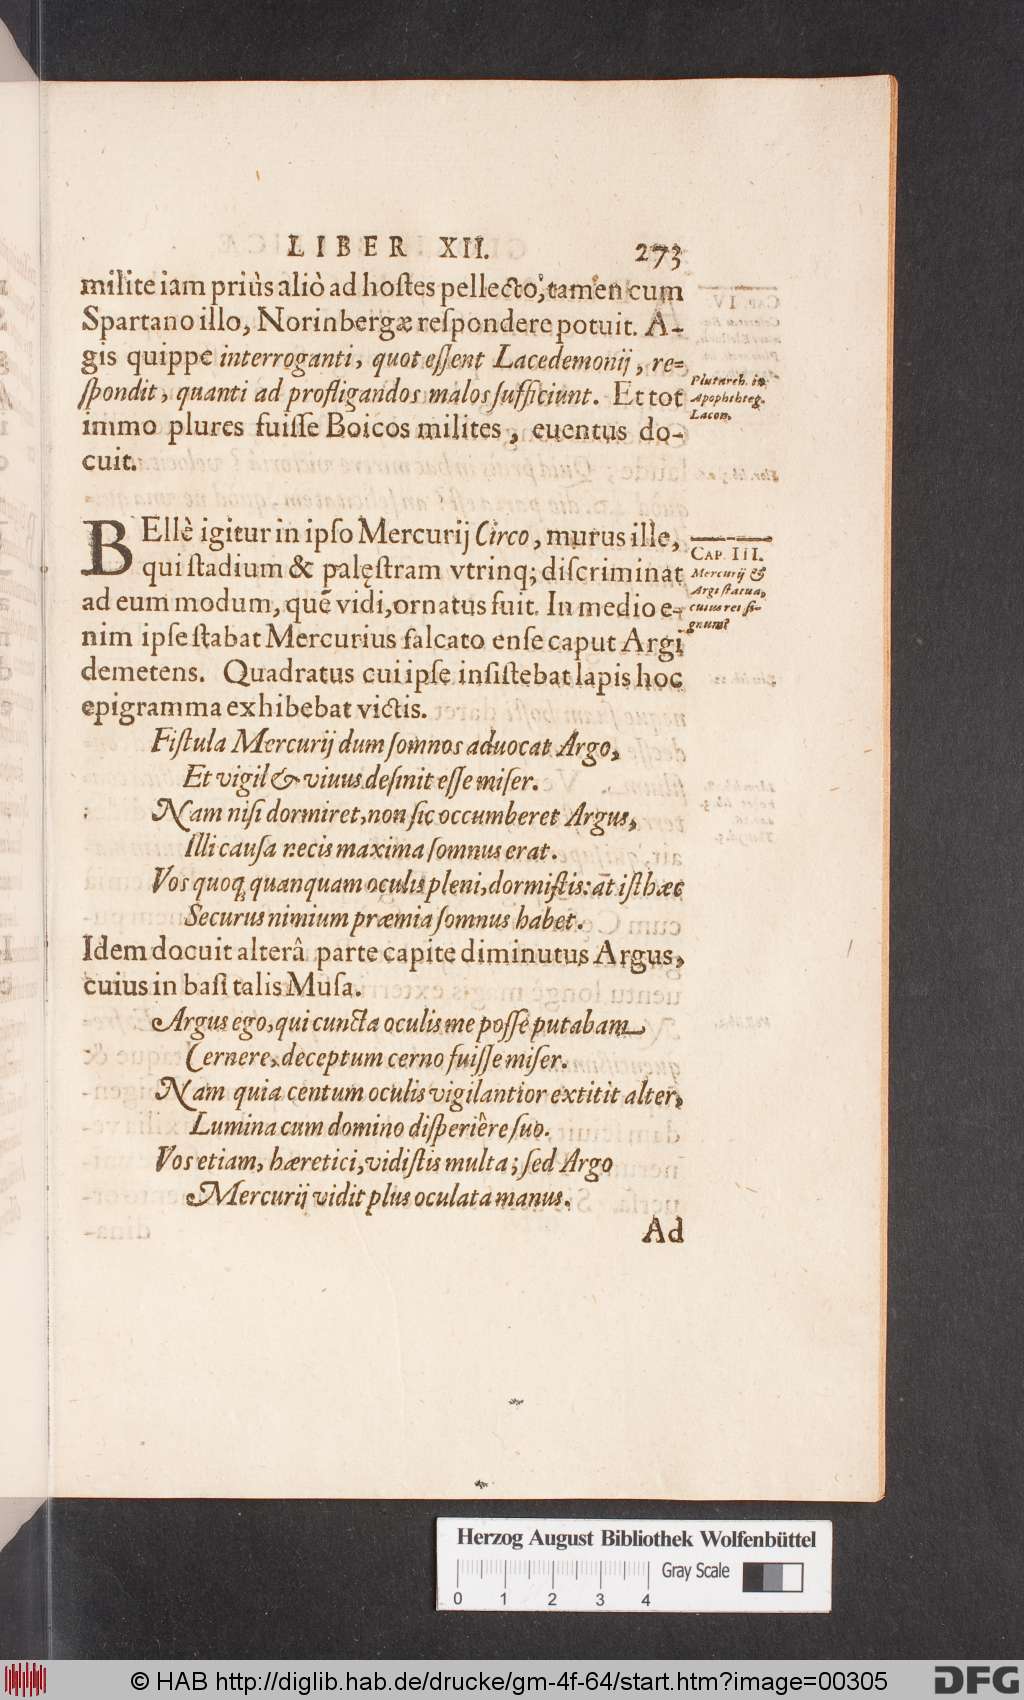 LIBER XII. 273
milite iam priùs aliò ad hoſtes pellecto, tamen cum
Spartano illo, Norinbergæ reſpondere potuit. A-
gis quippe interroganti, quot eſſent Lacedemonij, re-
ſpondit, quanti ad profligandos malos ſufficiunt. Et tot
immo plures fuiſſe Boicos milites, euentus do-
cuit.
Plutarch. in
Apophthteg.
Lacon.
BEllè igitur in ipſo Mercurij Circo, murus ille,
qui ſtadium & palęſtram vtrinq; diſcriminat
ad eum modum, quē vidi, ornatus fuit. In medio e-
nim ipſe ſtabat Mercurius falcato enſe caput Argi
demetens. Quadratus cui ipſe inſiſtebat lapis hoc
epigramma exhibebat victis.
CAP. III.
Mercurij &
Argi ſtatua,
cuius rei ſi-
gnum?
Fiſtula Mercurij dum ſomnos aduocat Argo,
Et vigil & viuus deſinit eſſe miſer.
Nam niſi dormiret, non ſic occumberet Argus,
Illi cauſa necis maxima ſomnus erat.
Vos quoq; quanquam oculis pleni, dormiſtis: at iſthæc
Securus nimium præmia ſomnus habet.
Idem docuit alterâ parte capite diminutus Argus,
cuius in baſi talis Muſa.
Argus ego, qui cuncta oculis me poſſe putabam
Cernere, deceptum cerno fuiſſe miſer.
Nam quia centum oculis vigilantior extitit alter,
Lumina cum domino diſperiêre ſuo.
Vos etiam, hæretici, vidiſtis multa; ſed Argo
Mercurij vidit plus oculata manus.
Ad
Herzog August Bibliothek Wolfenbüttel
0 1 2 3 4
Gray Scale
© HAB http://diglib.hab.de/drucke/gm-4f-64/start.htm?image=00305
DFG